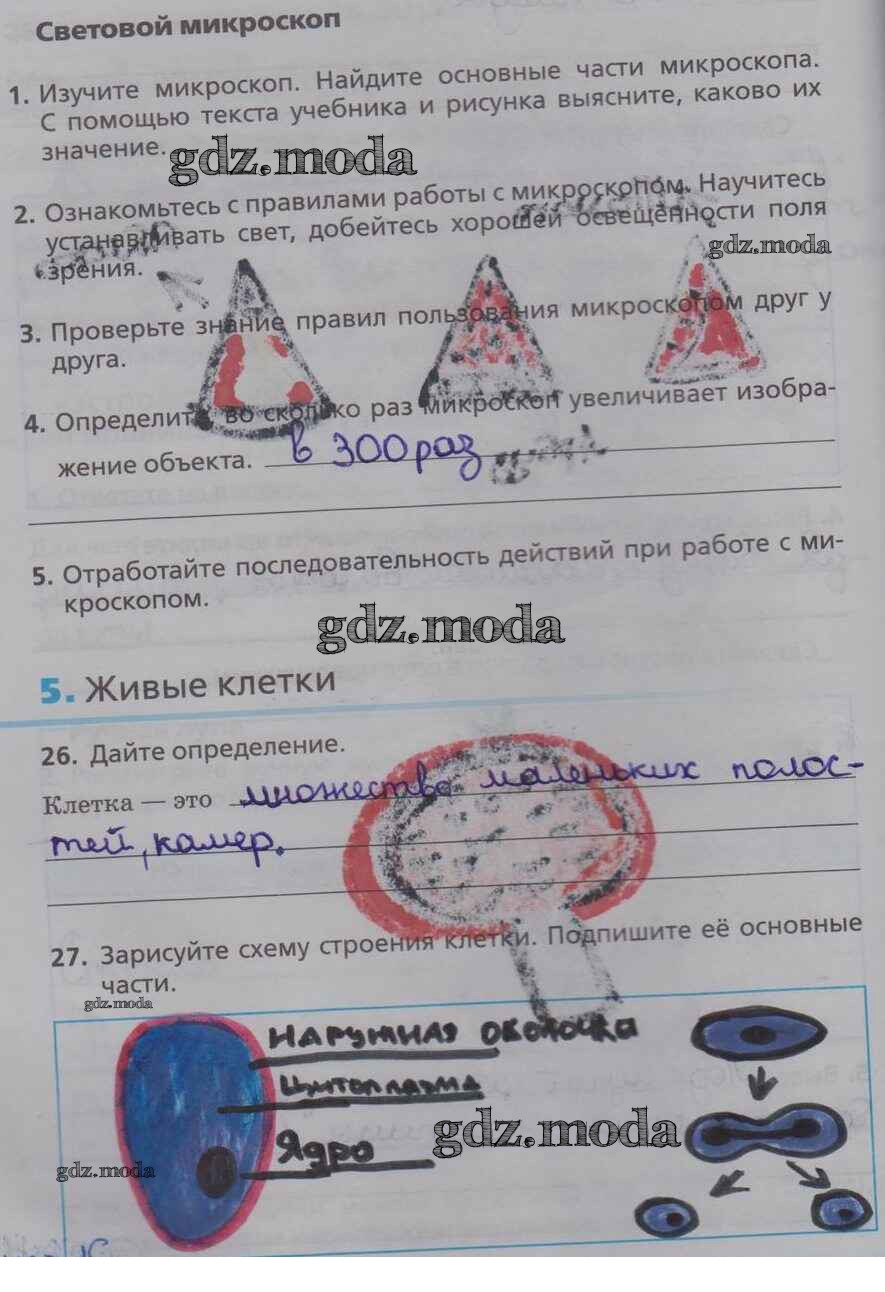 Световой микроскоп
1. Изучите микроскоп. Найдите основные части микроскопа.
С помощью текста учебника и рисунка выясните, каково их
значение.
gdz.moda
2. Ознакомьтесь с правилами работы с микроскопом. Научитесь
устанавливать свет, добейтесь хорошей освещённости поля
зрения.
gdz.moda
3. Проверьте знание правил пользования микроскопом друг у
друга.
4. Определите, во сколько раз микроскоп увеличивает изобра-
жение объекта. в 300 раз
5. Отработайте последовательность действий при работе с ми-
кроскопом.
gdz.moda
5. Живые клетки
26. Дайте определение.
Клетка — это множество маленьких полос-
тей, камер.
27. Зарисуйте схему строения клетки. Подпишите её основные
части.
gdz.moda
НАРУЖНАЯ ОБОЛОЧКА
Цитоплазма
gdz.moda
Ядро
gdz.moda